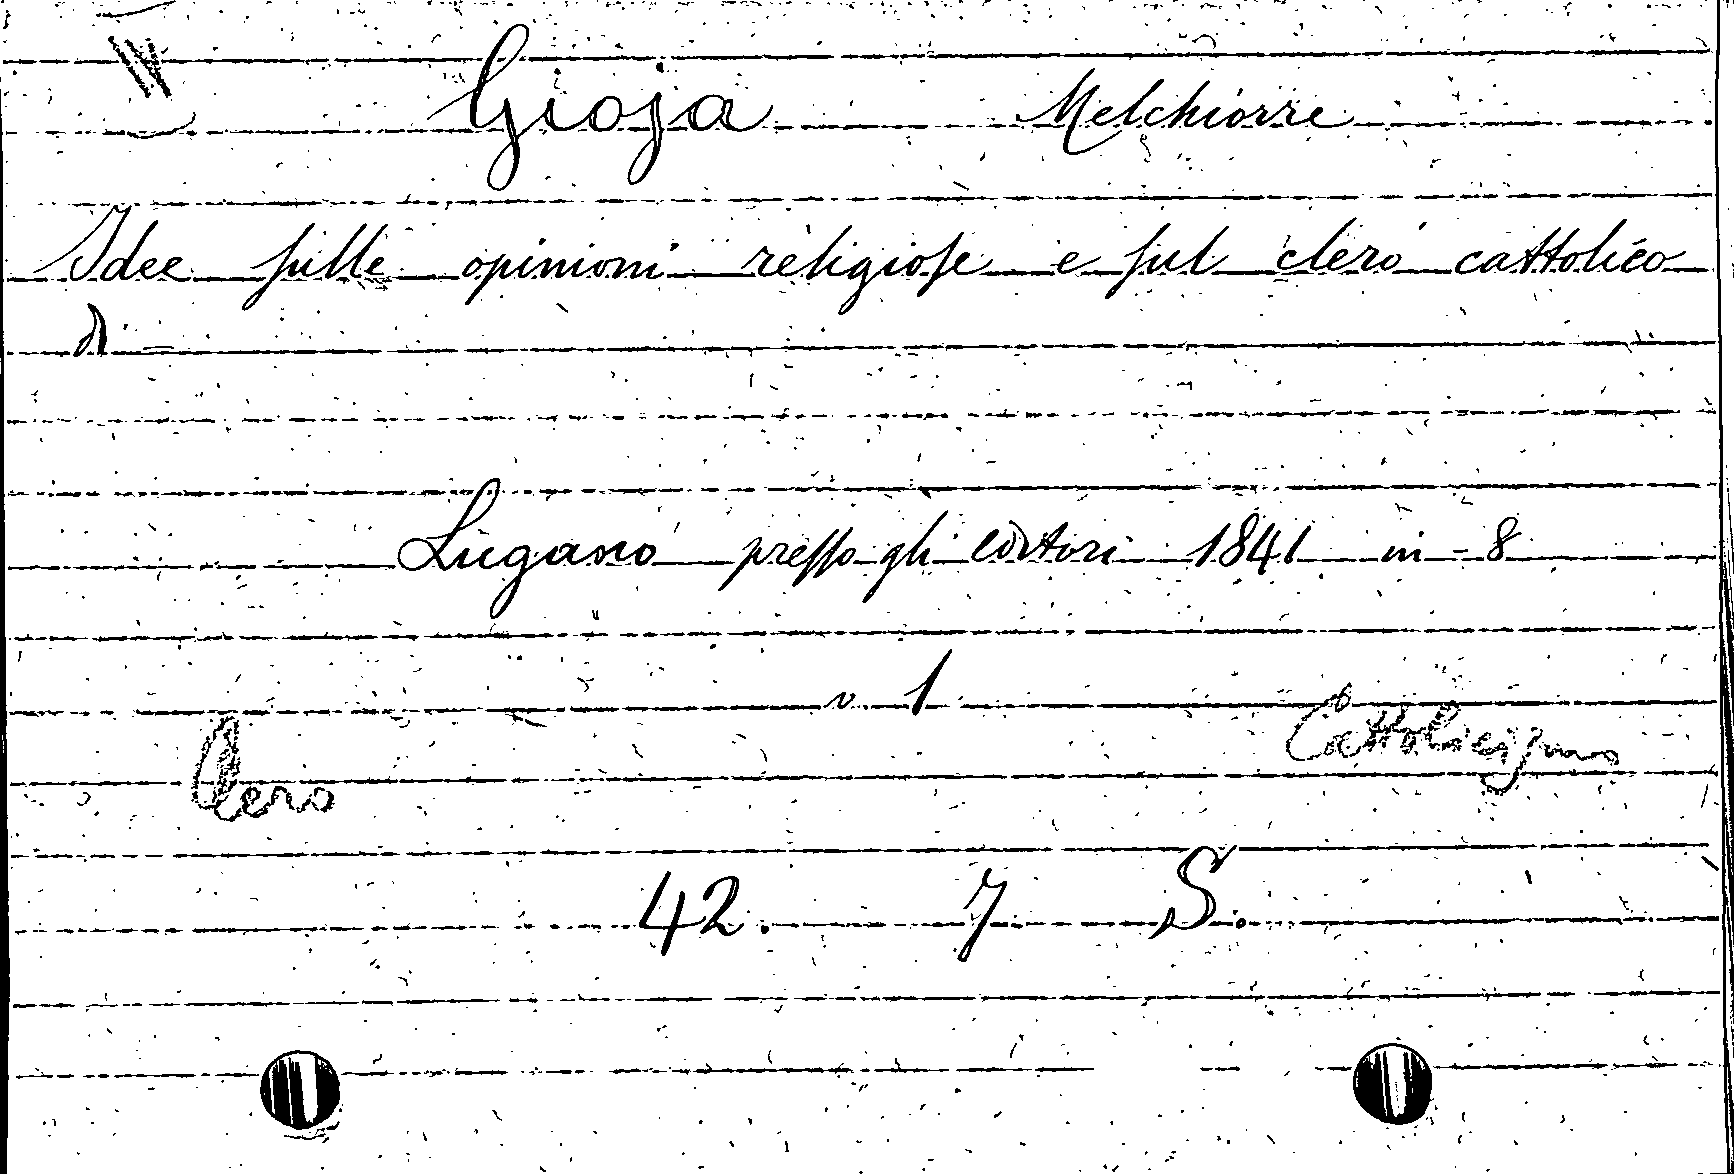 Gioja Melchiorre
Idee sulle opinioni religiose e sul clero cattolico
di -
Lugano presso gli editori 1841 in - 8
v. 1
Cattolicismo
Clero
42. 7. S.